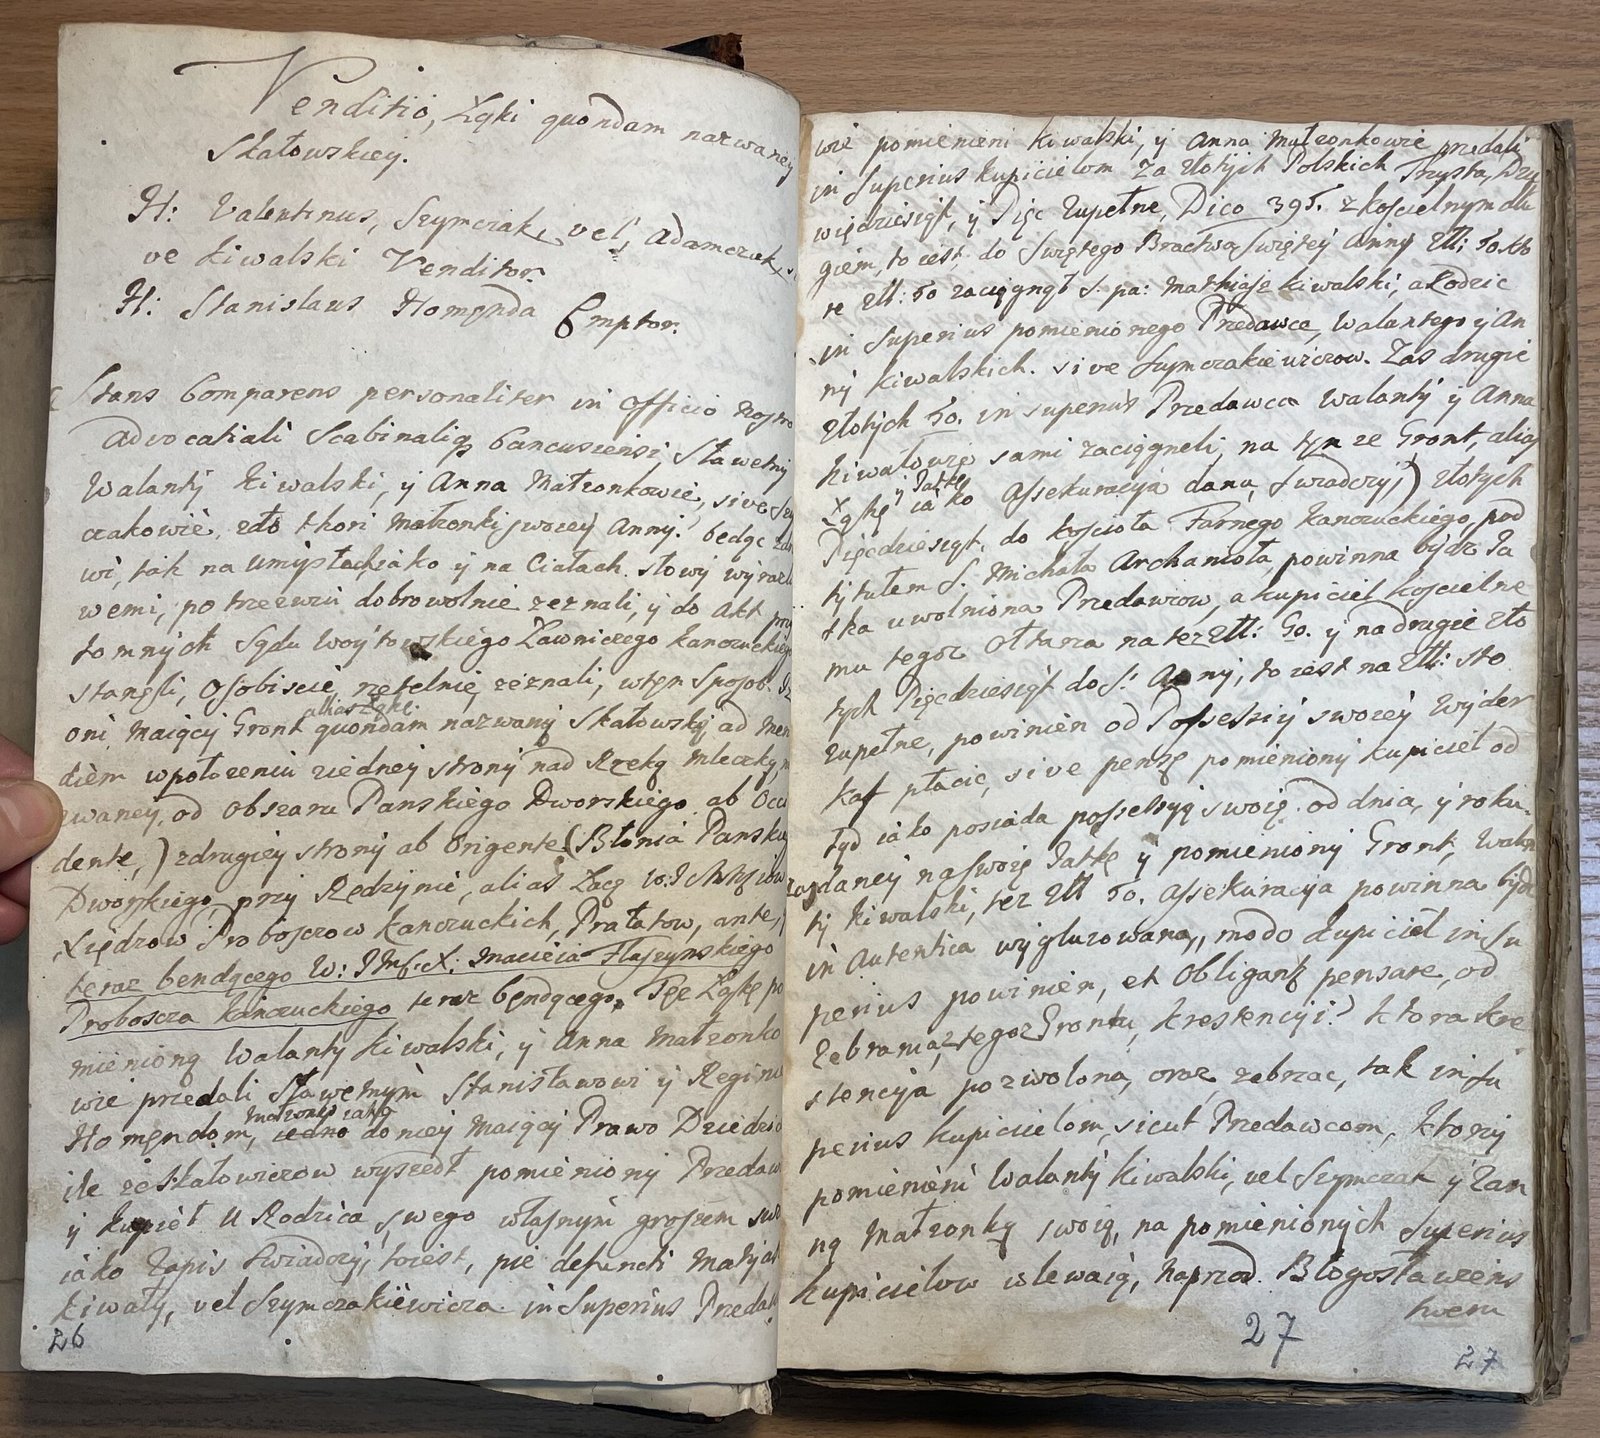 Venditio, Łąki quondam nazwaney
Skałowskiey.
H: Valentinus, Szymczak, vel, Adamczak, si
ve Kiwalski Venditor.
H: Stanislaus Homenda Emptor.
Stans Comparens personaliter in Officio Nostro
Advocatiali Scabinaliq Cancusiensi, Sławetny
Walanty Kiwalski, y Anna Małzonkowie, sive Szy
czakowie, zdo thori Małzonki swoiey Anny! będąc zdro
wi, tak na Umysłach, iako y na Ciałach słowy wyrazli
wemi, po trzezwiu dobrowolnie zeznali, y do Akt przy
tomnych Sądu Woytowskiego Ławniczego Kanczuckiego
stanęli, Osobiscie, rzetelnie zeznali, w ten Sposob. Iz
alias Łąkę
oni Maiący Gront quondam nazwany Skałowsky, ad Meri
diem w połozeniu ziedney strony nad Rzeką Mleczką, na
zwaney, od Obszaru Panskiego Dworskiego ab Occi
dente,) zdrugiey strony ab Origente (Błonia Pansku
Dworskiego, przy Rędzynie, alias Łącą W. J. Mci Xięzow
Xiędzow Proboszczow Kanczuckich, Prałatow, ante,)
teraz bendącego W: JMści X: Macieia Fluszynskiego
Proboszcza Kanczuckiego teraz będącego. Tęę Łąkę po
mienioną Walanty Kiwalski, y Anna Małzonko
wie przedali Sławetnym Stanisławowi y Reginie
Małzonką iako
Homendom, iedno do niey Maiący Prawo Dziedzic
ile ze Skałowiczow wyszedł pomieniony Przedaw
y kupieł U Rodzica swego własnym groszem swo
iako Zapis Swiadczy, toiest, pie defuncti Matyas
Kiwały, vel Szymczakiewicza in Superius Przedaw
26
wie pomienieni Kiwalski, y Anna Małzonkowie przedali
in Superius kupicielom Za złotych Polskich Trzysta, Dzie
więdziesiąt, y Pięc Zupełne, Dico 395. z kościelnym dłu
giem, to iest, do Swiętego Bractwa Swiętey Anny Zll: 50. kto
re Zll: 50 zaciągnął S. pa: Mathiasz Kiwalski, a Rodzic
in Superius pomienionego Przedawce, Walantego y An
ny Kiwalskich. sive Szymczakiewiczow. Zas drugie
złotych 50. in superius Przedawca Walanty y Anna
Kiwałowie sami zaciągneli, na tym ze Gront, alias
y Jatkę
Łąkę iako Assekuracyja dana, Swiadczy,) złotych
Pięcdziesiąt, do Kościoła Farnego Kanczuckiego, pod
tytułem S. Michała Archanioła, powinna bydz Ja
tka uwolniona Przedawcow, a kupiciel koscielne
mu tegoz Ołtarza na tez Zll: 50. y na drugie zło
tych Pięcdziesiąt do S. Anny, to iest na Zll: sto
zupełne, powinien od Possessiy swoiey wyder
kaf płacic, sive pensę pomieniony kupiciel od
tyd iako posiada possessyą swoię. od dnia, y roku
zapdaney na swoię Jatkę y pomieniony Gront, Walan
ty Kiwalski, tez Zll 50. assekuracya powinna bydz
in Autentica wygluzowana,, modo Kupiciel in su
perius powinien, et Obligant pensare, od
Zebrania, z tegoz Grontu, krestencyi? ktora kre
stencyja pozwolona, oraz, zebrac, tak in su
perius kupicielom, sicut Przedawcom, ktory
pomienieni Walanty Kiwalski, vel Szymczak y zan
ną Małzonką swoią, na pomienionych Superius
kupicielow wlewaią, naprzod. Błogosławiens
twem
27
27